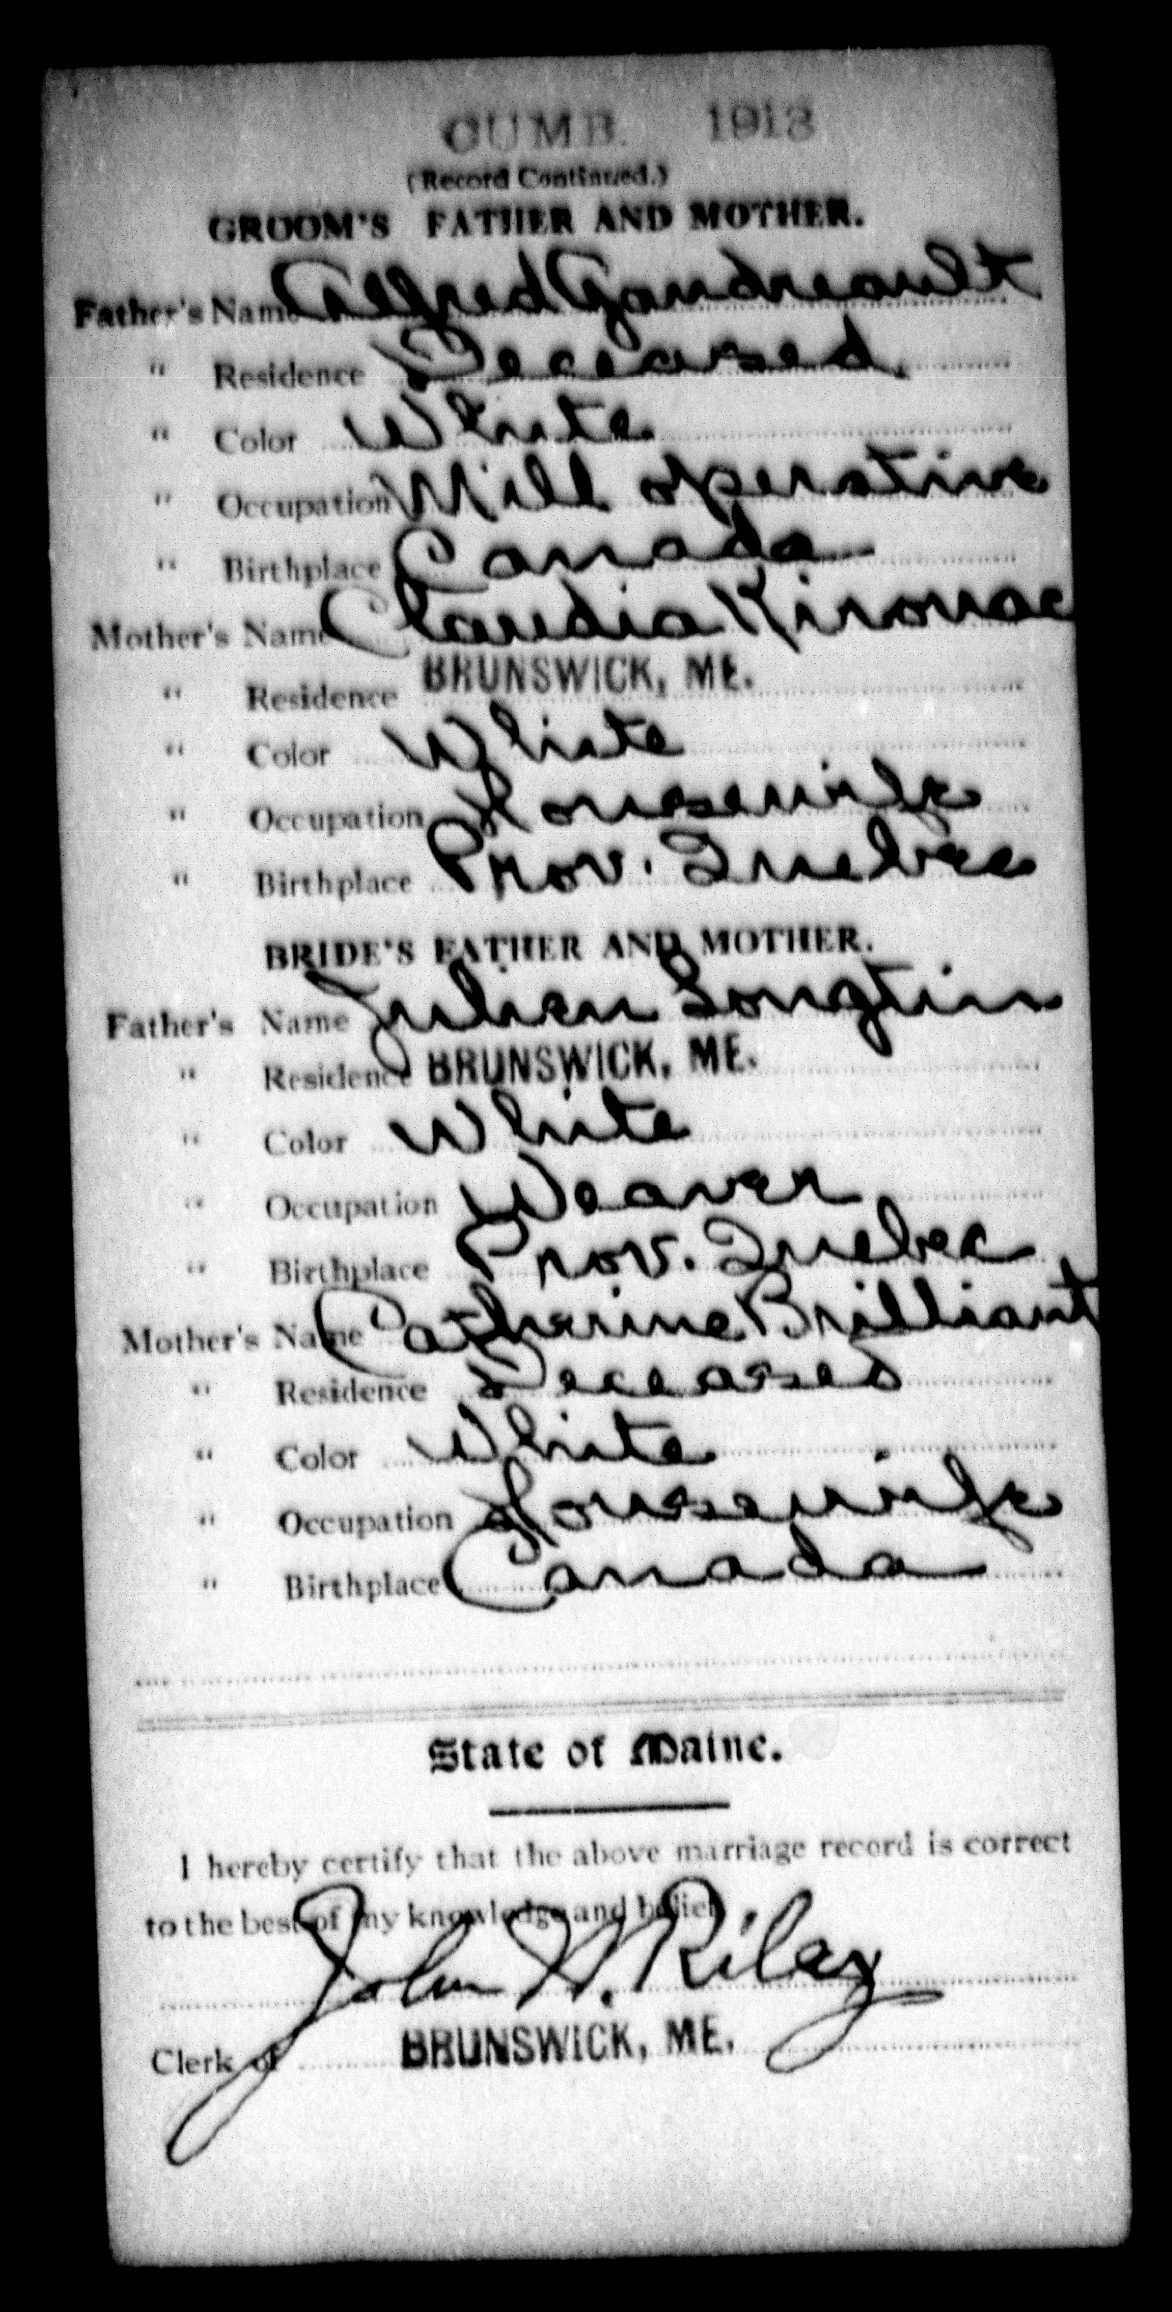 CUMB. 1913
(Record Continued.)
GROOM'S FATHER AND MOTHER.
Father's Name Alfred Gaudreault
" Residence Deceased
" Color White
" Occupation Mill operative
" Birthplace Canada
Mother's Name Claudia Kirouac
" Residence BRUNSWICK, ME.
" Color White
" Occupation Housewife
" Birthplace Prov. Quebec
BRIDE'S FATHER AND MOTHER.
Father's Name Julien Longtin
" Residence BRUNSWICK, ME.
" Color White
" Occupation Weaver
" Birthplace Prov. Quebec
Mother's Name Catherine Brilliant
" Residence Deceased
" Color White
" Occupation Housewife
" Birthplace Canada
State of Maine.
I hereby certify that the above marriage record is correct
to the best of my knowledge and belief.
John W. Riley
Clerk of BRUNSWICK, ME.